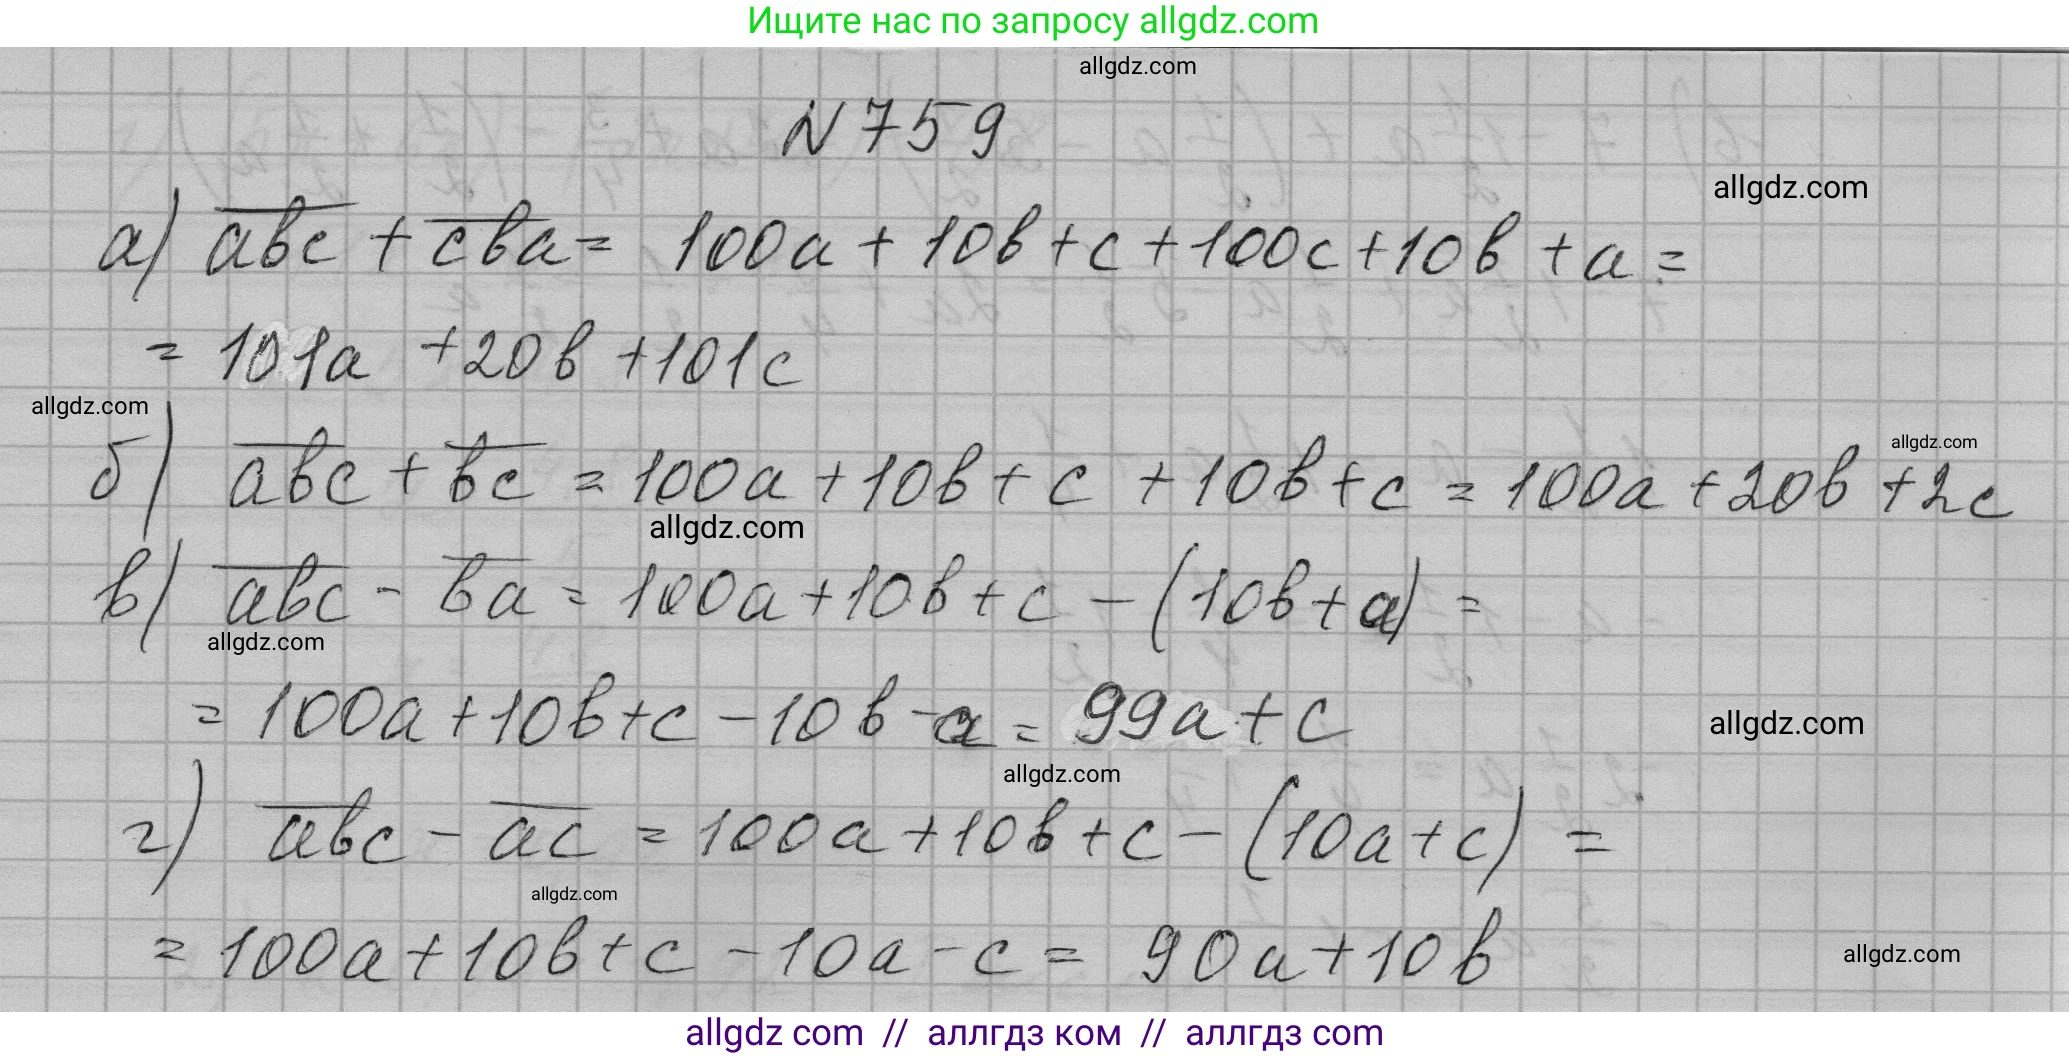 Ищите нас по запросу allgdz.com
allgdz.com
N 759
allgdz.com
а) a̅b̅c̅ + c̅b̅a̅ = 100a + 10b + c + 100c + 10b + a =
= 101a + 20b + 101c
allgdz.com
allgdz.com
б) a̅b̅c̅ + b̅c̅ = 100a + 10b + c + 10b + c = 100a + 20b + 2c
allgdz.com
в) a̅b̅c̅ - b̅a̅ = 100a + 10b + c - (10b + a) =
allgdz.com
= 100a + 10b + c - 10b - a = 99a + c
allgdz.com
allgdz.com
г) a̅b̅c̅ - a̅c̅ = 100a + 10b + c - (10a + c) =
allgdz.com
= 100a + 10b + c - 10a - c = 90a + 10b
allgdz.com
allgdz com // аллгдз ком // аллгдз com